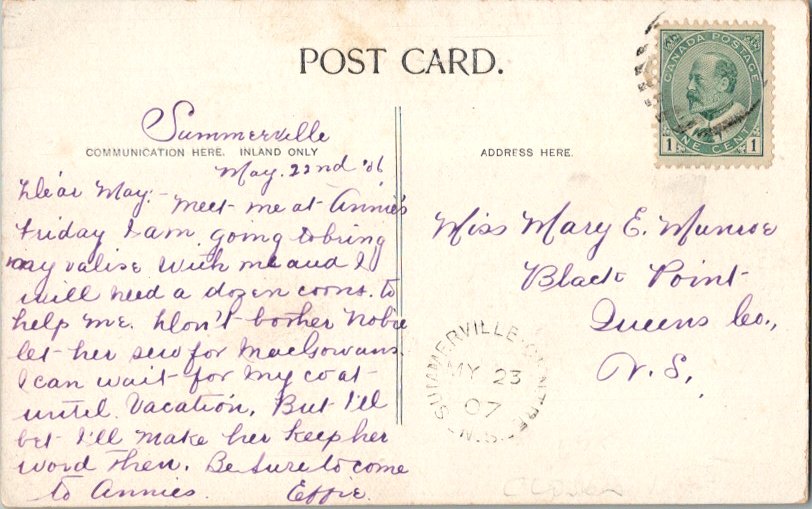 POST CARD.
CANADA POSTAGE
1 ONE CENT 1
Summerville
COMMUNICATION HERE. INLAND ONLY
ADDRESS HERE.
May. 22nd '06
Dear May:- Meet me at Annie's
Friday I am going to bring
my valise with me and I
will need a dozen coons. to
help me. Don't bother Nobie
let her sew for MacGowans.
I can wait for my coat
until Vacation. But I'll
bet I'll make her keep her
word then. Be sure to come
to Annies. Effie.
Miss Mary E. Munroe
Black Point
Queens Co.,
N.S.
SUMMERVILLE-CENTRE
MY 23
07
N.S.